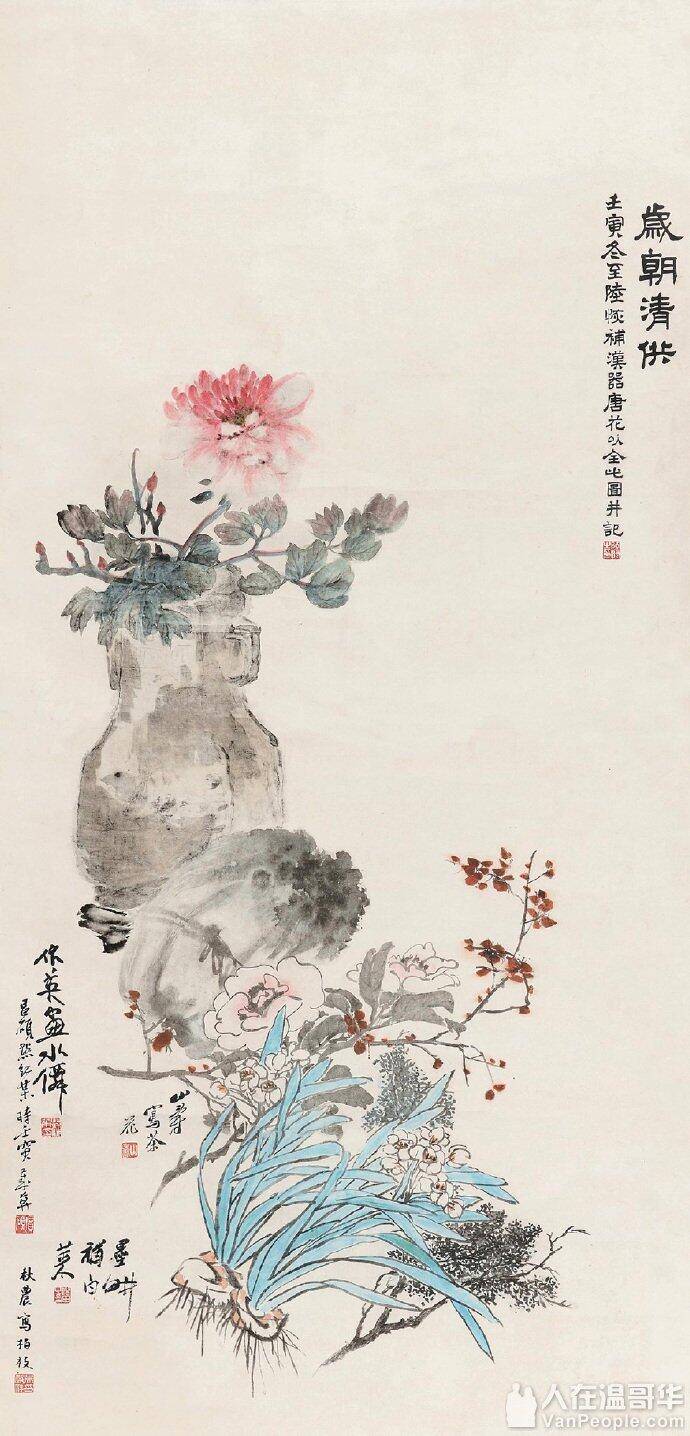 歲朝清供
壬寅冬至陸恢補漢器唐花以全此圖并記
作英畫水僊
昌碩點紅葉時壬寅
山壽
寫茶
花
墨
補白
秋農寫柏枝
人在温哥华
VanPeople.com